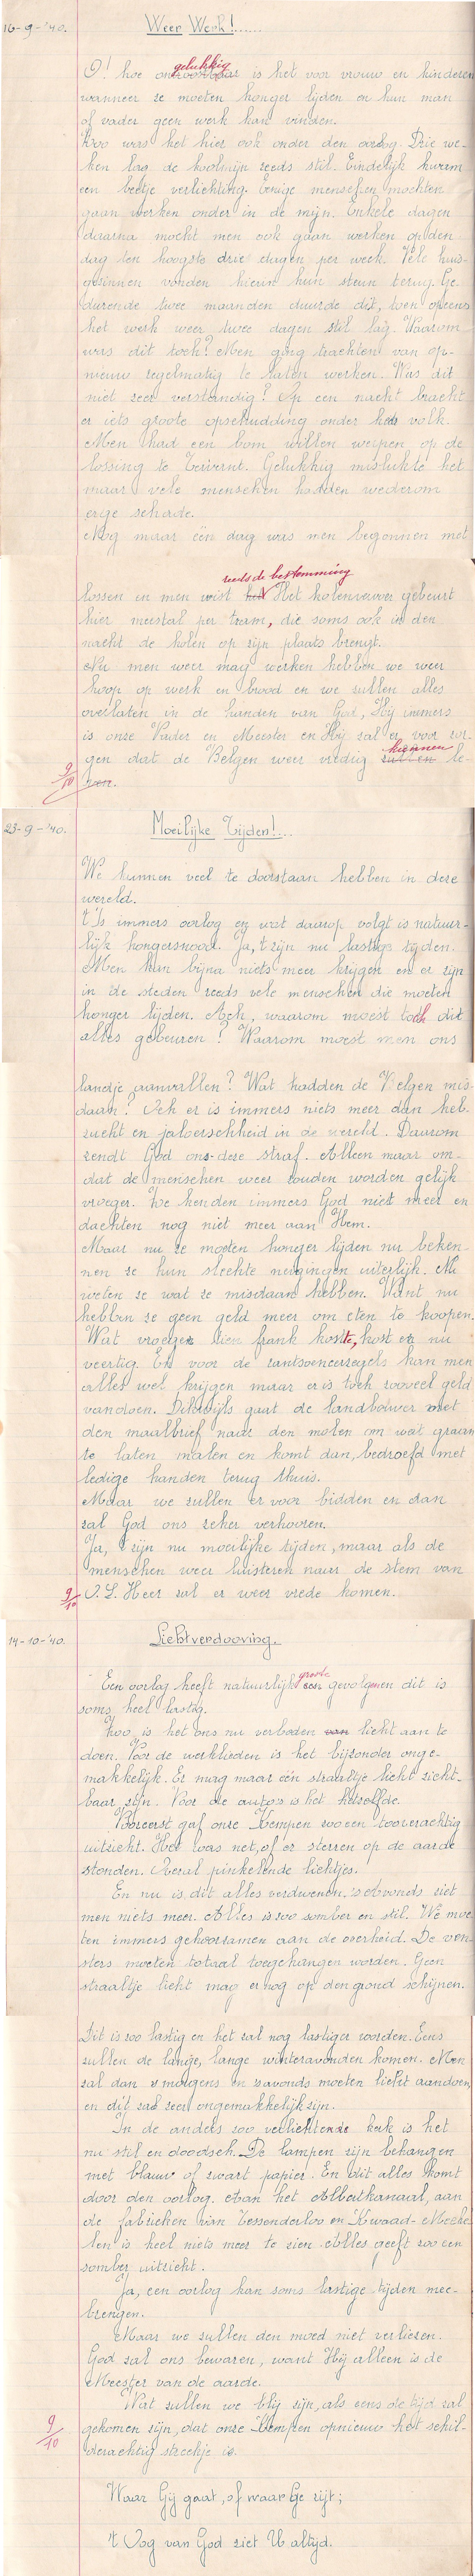 16-9-'40. Weer Werk!......
gelukkig
O! hoe is het voor vrouw en kinderen
wanneer ze moeten honger lijden en hun man
of vader geen werk kan vinden.
Zoo was het hier ook onder den oorlog. Drie we-
ken lag de koolmijn reeds stil. Eindelijk kwam
een beetje verlichting. Eenige menschen mochten
gaan werken onder in de mijn. Enkele dagen
daarna mocht men ook gaan werken op den
dag ten hoogste drie dagen per week. Vele huis-
gezinnen vonden hierin hun steun terug. Ge-
durende twee maanden duurde dit, toen opeens
het werk weer twee dagen stil lag. Waarom
was dit toch? Men ging trachten van op-
nieuw regelmatig te laten werken. Was dit
niet zeer verstandig? Op een nacht bracht
er iets groote opschudding onder het volk.
Men had een bom willen werpen op de
lossing te Beivernt. Gelukkig mislukte het
maar vele menschen hadden wederom
erge schade.
Nog maar één dag was men begonnen met
reeds de bestemming
lossen en men wist het Het kolenvervoer gebeurt
hier meestal per tram, die soms ook in den
nacht de kolen op zijn plaats brengt.
Nu men weer mag werken hebben we weer
hoop op werk en brood en we zullen alles
overlaten in de handen van God, Hij immers
is onze Vader en Meester en Hij zal er voor zor-
kunnen
gen dat de Belgen weer vredig zullen le-
9/10 ven.
23-9-'40. Moeilijke Tijden!...
We kunnen veel te doorstaan hebben in deze
wereld.
't Is immers oorlog en wat daarop volgt is natuur-
lijk hongersnood. Ja, 't zijn nu lastige tijden.
Men kan bijna niets meer krijgen en er zijn
in de steden reeds vele menschen die moeten
honger lijden. Ach, waarom moest toch dit
alles gebeuren? Waarom moest men ons
landje aanvallen? Wat hadden de Belgen mis-
daan? Och er is immers niets meer dan heb-
zucht en jaloerschheid in de wereld. Daarom
zendt God ons deze straf. Alleen maar om-
dat de menschen weer zouden worden gelijk
vroeger. We kenden immers God niet meer en
dachten nog niet meer aan Hem.
Maar nu ze moeten honger lijden nu beken-
nen ze hun slechte neigingen uiterlijk. Nu
weten ze wat ze misdaan hebben. Want nu
hebben ze geen geld meer om eten te koopen.
Wat vroeger tien frank kostte, kost er nu
veertig. En voor de rantsoeneerzegels kan men
alles wel krijgen maar er is toch zooveel geld
vandoen. Dikwijls gaat de landbouwer met
den maalbrief naar den molen om wat graan
te laten malen en komt dan, bedroefd met
ledige handen terug thuis.
Maar we zullen er voor bidden en dan
zal God ons zeker verhooren.
Ja, 't zijn nu moeilijke tijden, maar als de
menschen weer luisteren naar de stem van
9/10 O. L. Heer zal er weer vrede komen.
14-10-'40. Lichtverdooving.
groote
Een oorlog heeft natuurlijk een gevolgen en dit is
soms heel lastig.
Zoo is het ons nu verboden van licht aan te
doen. Voor de werklieden is het bijzonder onge-
makkelijk. Er mag maar één straaltje licht zicht-
baar zijn. Voor de auto's is het hetzelfde.
Vooreerst gaf onze Kempen zoo een tooverachtig
uitzicht. Het was net, of er sterren op de aarde
stonden. Overal pinkelende lichtjes.
En nu is dit alles verdwenen. 's Avonds ziet
men niets meer. Alles is zoo somber en stil. We moe-
ten immers gehoorzamen aan de overheid. De ven-
sters moeten totaal toegehangen worden. Geen
straaltje licht mag er nog op den grond schijnen.
Dit is zoo lastig en het zal nog lastiger worden. Eens
zullen de lange, lange winteravonden komen. Men
zal dan 's morgens en 's avonds moeten licht aandoen
en dit zal zeer ongemakkelijk zijn.
In de anders zoo verlichtende kerk is het
nu stil en doodsch. De lampen zijn behangen
met blauw of zwart papier. En dit alles komt
door den oorlog. Aan het Albertkanaal, aan
de fabrieken van Tessenderloo en Kwaad-Meche-
len is heel niets meer te zien. Alles geeft zoo een
somber uitzicht.
Ja, een oorlog kan soms lastige tijden mee-
brengen.
Maar we zullen den moed niet verliezen.
God zal ons bewaren, want Hij alleen is de
Meester van de aarde.
Wat zullen we blij zijn, als eens de tijd zal
9/10 gekomen zijn, dat onze Kempen opnieuw het schil-
derachtig streekje is.
Waar Gij gaat, of waar Ge zijt;
't Oog van God ziet U altijd.